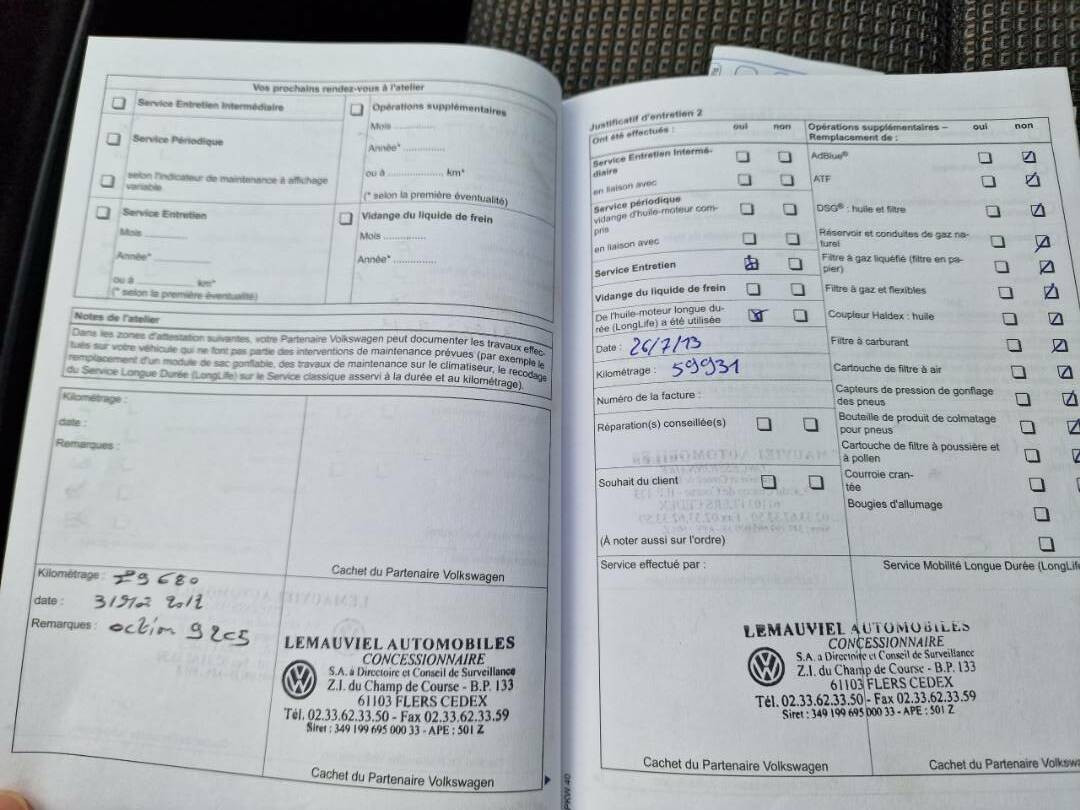 Vos prochains rendez-vous à l'atelier
Service Entretien Intermédiaire
Service Périodique
selon l'indicateur de maintenance à affichage
variable
Opérations supplémentaires
Mois ..............
Année* ..............
ou à .................... km*
(* selon la première éventualité)
Service Entretien
Mois ..............
Année* ..............
ou à .................... km*
(* selon la première éventualité)
Vidange du liquide de frein
Mois ..............
Année* ..............
Notes de l'atelier
Dans les zones d'attestation suivantes, votre Partenaire Volkswagen peut documenter les travaux effec-
tués sur votre véhicule qui ne font pas partie des interventions de maintenance prévues (par exemple le
remplacement d'un module de sac gonflable, des travaux de maintenance sur le climatiseur, le recodage
du Service Longue Durée (LongLife) sur le Service classique asservi à la durée et au kilométrage).
Kilométrage :
date :
Remarques :
Cachet du Partenaire Volkswagen
Kilométrage :
date :
Remarques : action
LEMAUVIEL AUTOMOBILES
CONCESSIONNAIRE
S.A. à Directoire et Conseil de Surveillance
Z.I. du Champ de Course - B.P. 133
61103 FLERS CEDEX
Tél. 02.33.62.33.50 - Fax 02.33.62.33.59
Siret : 349 199 695 000 33 - APE : 501 Z
Cachet du Partenaire Volkswagen
Justificatif d'entretien 2
Ont été effectués : oui non
Service Entretien Intermé-
diaire
en liaison avec
Service périodique
vidange d'huile-moteur com-
pris
en liaison avec
Service Entretien
Vidange du liquide de frein
De l'huile-moteur longue du-
rée (LongLife) a été utilisée
Date : 26/7/13
Kilométrage : 59931
Numéro de la facture :
Réparation(s) conseillée(s)
Souhait du client
(À noter aussi sur l'ordre)
Opérations supplémentaires – oui non
Remplacement de :
AdBlue®
ATF
DSG® : huile et filtre
Réservoir et conduites de gaz na-
turel
Filtre à gaz liquéfié (filtre en pa-
pier)
Filtre à gaz et flexibles
Coupleur Haldex : huile
Filtre à carburant
Cartouche de filtre à air
Capteurs de pression de gonflage
des pneus
Bouteille de produit de colmatage
pour pneus
Cartouche de filtre à poussière et
à pollen
Courroie cran-
tée
Bougies d'allumage
Service effectué par :
Service Mobilité Longue Durée (LongLife
LEMAUVIEL AUTOMOBILES
CONCESSIONNAIRE
S.A. à Directoire et Conseil de Surveillance
Z.I. du Champ de Course - B.P. 133
61103 FLERS CEDEX
Tél. 02.33.62.33.50 - Fax 02.33.62.33.59
Siret : 349 199 695 000 33 - APE : 501 Z
Cachet du Partenaire Volkswagen
Cachet du Partenaire Vo
PKW 40